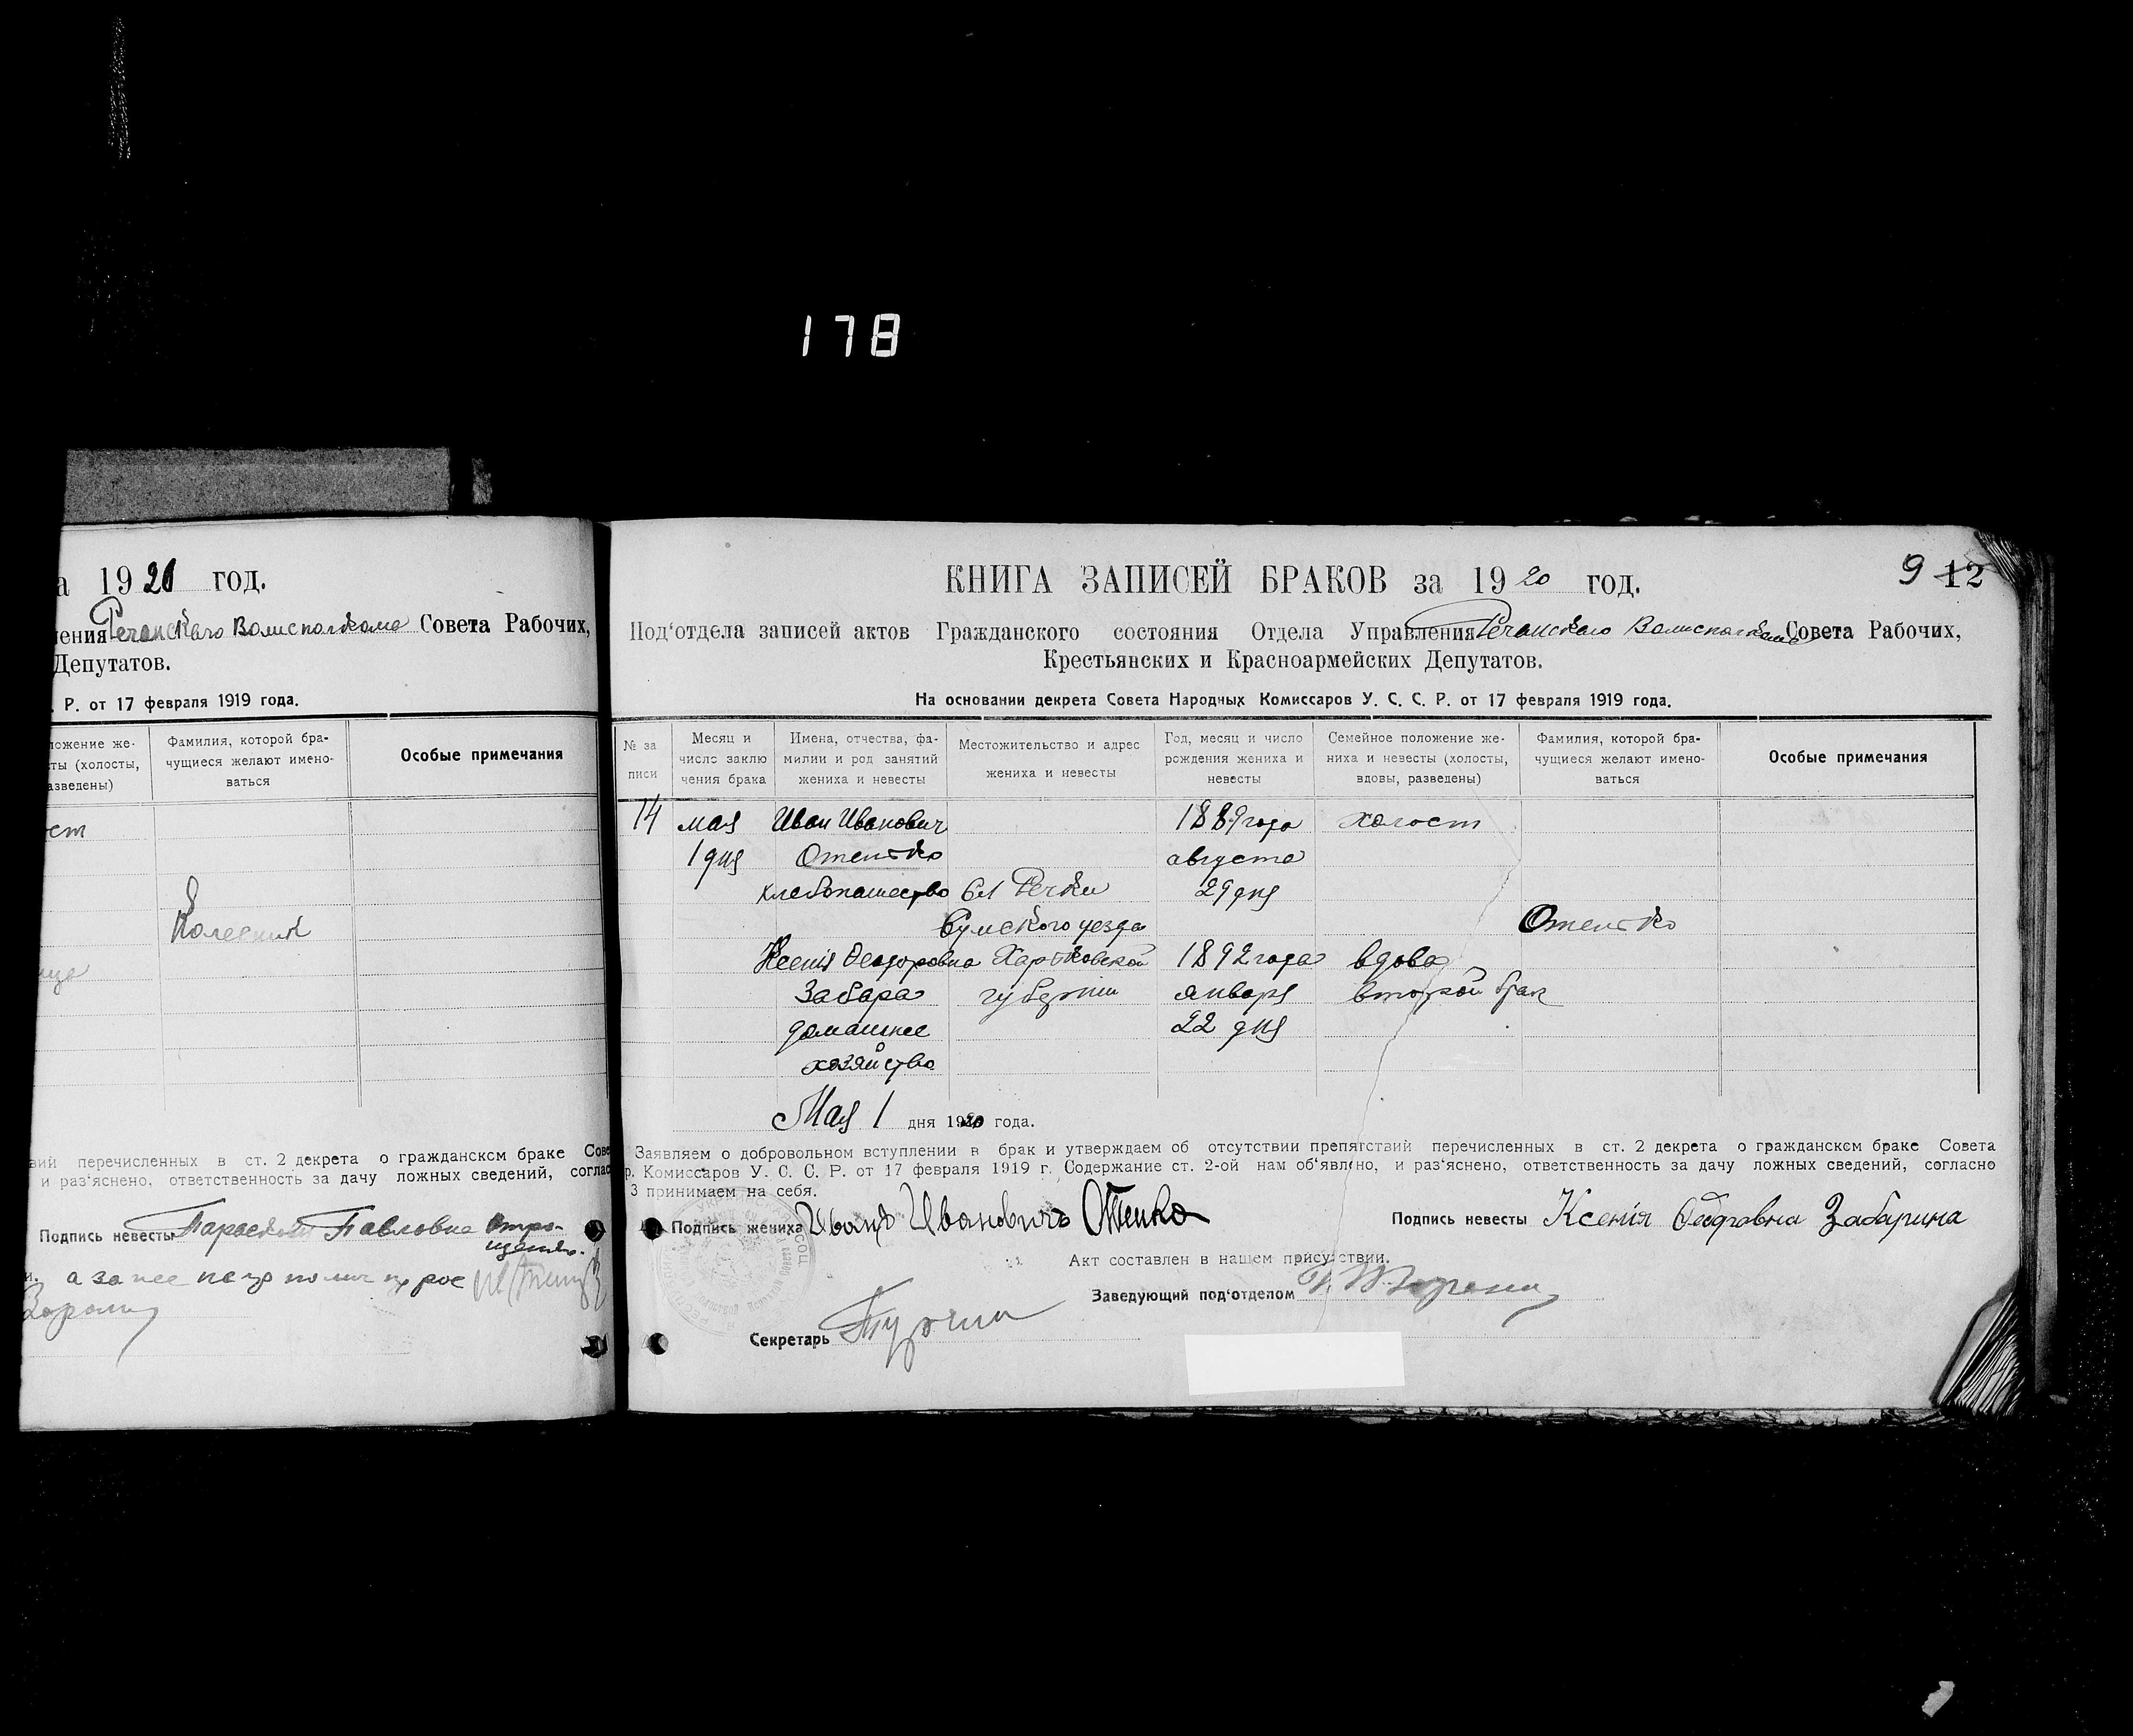 178
а 1920 год.
ления Речанскаго Волисполкома Совета Рабочих,
Депутатов.
. Р. от 17 февраля 1919 года.
ложение же-
ты (холосты,
азведены)
Фамилия, которой бра-
чущиеся желают имено-
ваться
Особые примечания
ст
Колесник
ица
вий перечисленных в ст. 2 декрета о гражданском браке Сове
и раз‘яснено, ответственность за дачу ложных сведений, соглас
Подпись невесты Параскева Павловна
а за нее
9 12
КНИГА ЗАПИСЕЙ БРАКОВ за 1920 год.
Под‘отдела записей актов Гражданского состояния Отдела Управления Речанскаго Волисполкома Совета Рабочих,
Крестьянских и Красноармейских Депутатов.
На основании декрета Совета Народных Комиссаров У. С. С. Р. от 17 февраля 1919 года.
№ за
писи
Месяц и
число заклю
чения брака
Имена, отчества, фа-
милии и род занятий
жениха и невесты
Местожительство и адрес
жениха и невесты
Год, месяц и число
рождения жениха и
невесты
Семейное положение же-
ниха и невесты (холосты,
вдовы, разведены)
Фамилия, которой бра-
чущиеся желают имено-
ваться
Особые примечания
14 мая Иван Иванович 1889 года холост
1 дня Отенко августа
хлебопашество Речки 29 дня
Сумского уезда Отенко
Ксенія Феодоровна Харьковской 1892 года вдова
Забара губернии января второй брак
домашнее 22 дня
хозяйство
Мая 1 дня 1920 года.
Заявляем о добровольном вступлении в брак и утверждаем об отсутствии препятствий перечисленных в ст. 2 декрета о гражданском браке Совета
р. Комиссаров У. С. С. Р. от 17 февраля 1919 г. Содержание ст. 2-ой нам об‘явлено, и раз‘яснено, ответственность за дачу ложных сведений, согласно
3 принимаем на себя.
Подпись жениха Иванъ Ивановичъ Отенко Подпись невесты Ксенія Феодравна Забарина
Акт составлен в нашем присутствии.
Заведующий под‘отделом
Секретарь